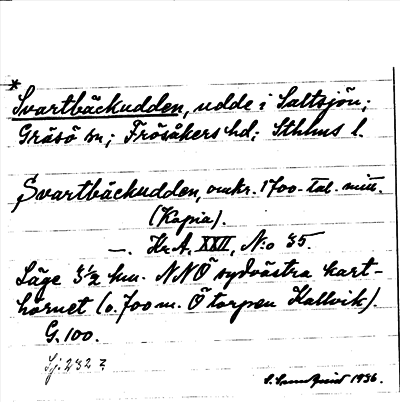 * Svartbäckudden, udde i Saltsjön;
Gräsö sn; Frösåkers hd; Sthlms l.
Svartbäckudden, omkr. 1700-tal. mitt.
(Kopia).
—. Kr.A, XXII, N:o 35.
Läge 3½ km. NNÖ sydvästra kart-
hörnet (o. 700 m. Ö torpen Kallvik).
G. 100.
Sj. 232
1936.